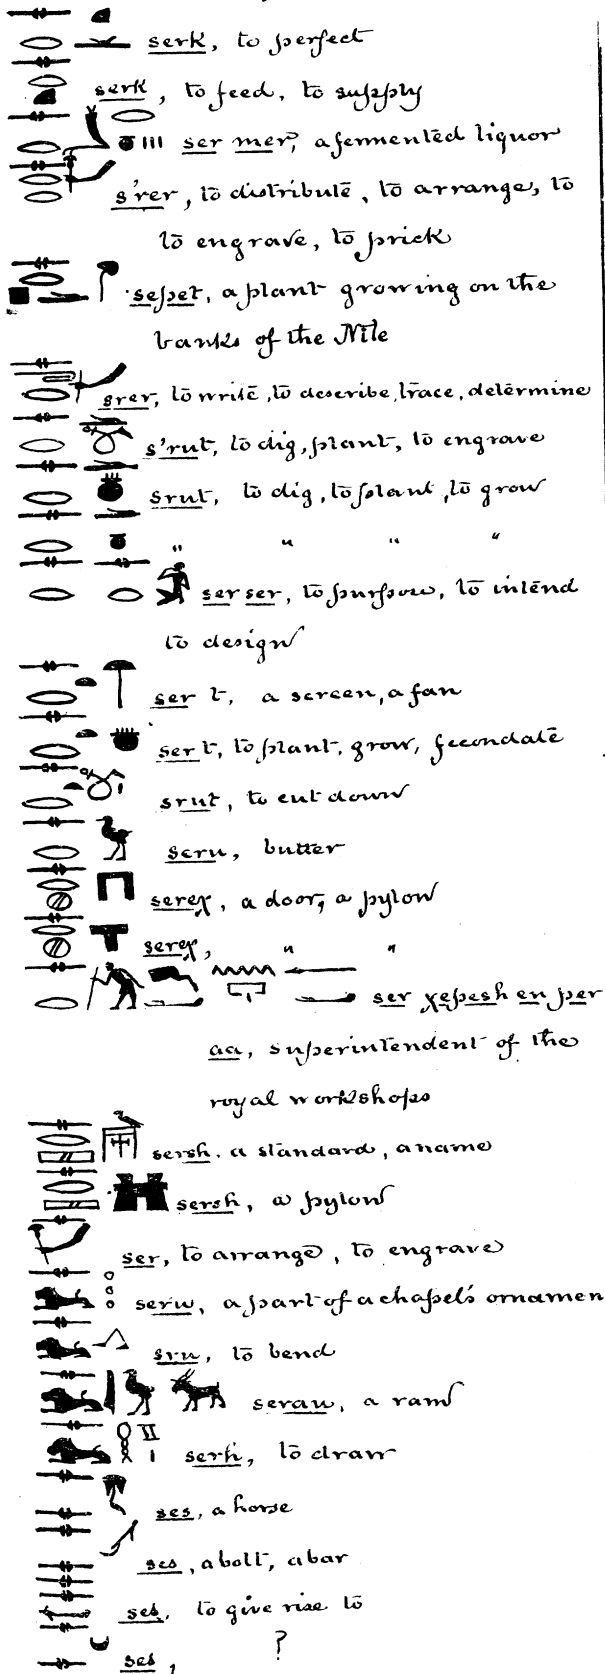 serk, to perfect
serk, to feed, to supply
ser mer, a fermented liquor
s'rer, to distribute, to arrange, to
to engrave, to prick
sepet, a plant growing on the
banks of the Nile
srer, to write, to describe, trace, determine
s'rut, to dig, plant, to engrave
srut, to dig, to plant, to grow
" " " "
ser ser, to purpose, to intend
to design
ser t, a screen, a fan
ser t, to plant, grow, fecondate
srut, to cut down
seru, butter
serex, a door, a pylon
serex, " "
ser xepesh en per
aa, superintendent of the
royal workshops
sersh, a standard, a name
sersh, a pylon
ser, to arrange, to engrave
seru, a part of a chapel's ornamen
sru, to bend
serau, a ram
serh, to draw
ses, a horse
ses, a bolt, a bar
ses, to give rise to
ses, ?